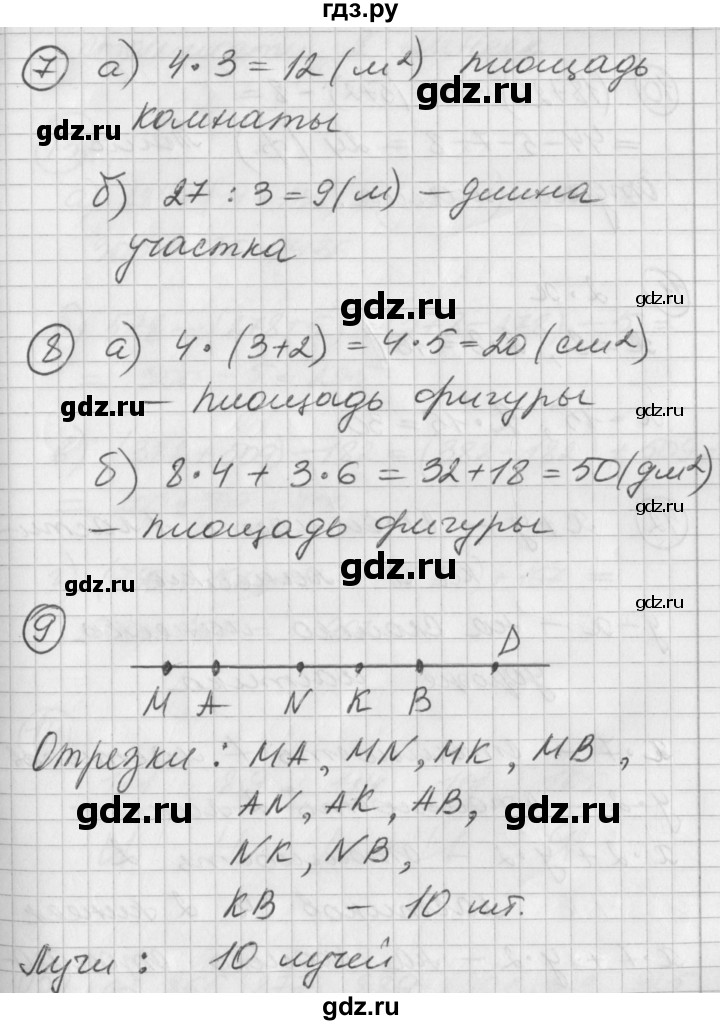 гдз.ру
7 а) 4·3=12 (м²) площадь
комнаты
gdz.ru
gdz.ru
б) 27 : 3 = 9 (м) – длина
участка
gdz.ru
gdz.ru
8 а) 4·(3+2) = 4·5=20 (см²)
– площадь фигуры
gdz.ru
gdz.ru
б) 8·4 + 3·6 = 32+18 = 50 (дм²)
– площадь фигуры
gdz.ru
gdz.ru
gdz.ru
gdz.ru
9
D
M A N K B
Отрезки : MA, MN, MK, MB,
AN, AK, AB,
gdz.ru
gdz.ru
NK, NB,
KB – 10 шт.
Лучи : 10 лучей
gdz.ru